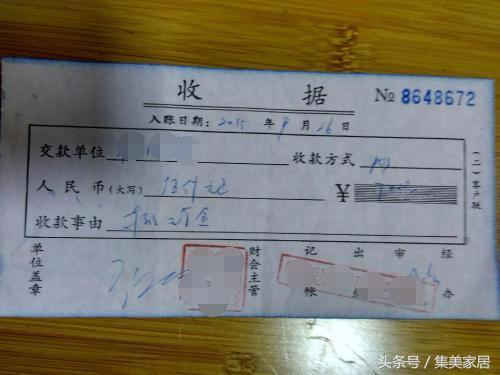 收 据 № 8648672
入账日期：2015 年 9 月 26 日
交款单位 收款方式
人民币(大写) 伍仟元 ￥
收款事由 定金
(二)客户联
单位盖章 财会主管 记帐 出 审 经办
头条号／集美家居